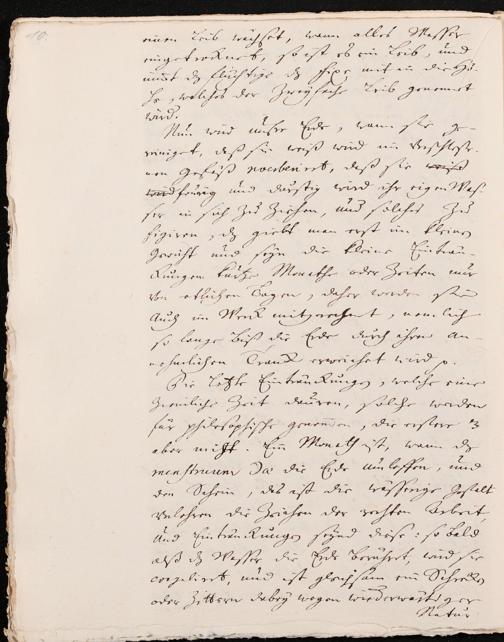 10.
einen Leib wächset, wann alles Wasser
eingetroknet, so ist es ein Leib, und
nimt dz flüchtige dz fixe mit in die Hö-
he, welches der Zweyfache Leib genennet
wird.
Nun wird unsre Erde, wann sie ge-
reiniget, daß sie weiß wird im Verschloße-
nen Gefäß, daß sie
feurig und durstig wird ihr eigen Waß-
ser in sich zu ziehen, und solches zu
figiren, dz giebt man erst im kleinen
Gewicht und seyn die kleine Einträn-
kungen kurtze Monathe oder Zeiten nur
von etlichen Tagen, daher werden sie
auch im Werk mitgerechnet, nemlich
so lange biß die Erde durch ihren an-
nehmlichen Tranck erweichet wird
Die letzte Eintränkungen, welche eine
Ziemliche Zeit dauren, solche werden
für philosophische genommen, die erstere
aber nicht. Ein Monath ist, wann dz
menstruum die Erde angeloffen, und
den Schein, das ist die wässerige Gestalt
verlohren die Zeichen der rechten Arbeit,
und Eintränkungen seynd diese: so bald
alß dz Wasser die Erde berühret, wird sie
coaguliert, und ist gleichsam ein Schrecken
oder Zittern dabey wegen wiederwärtiger
Natur